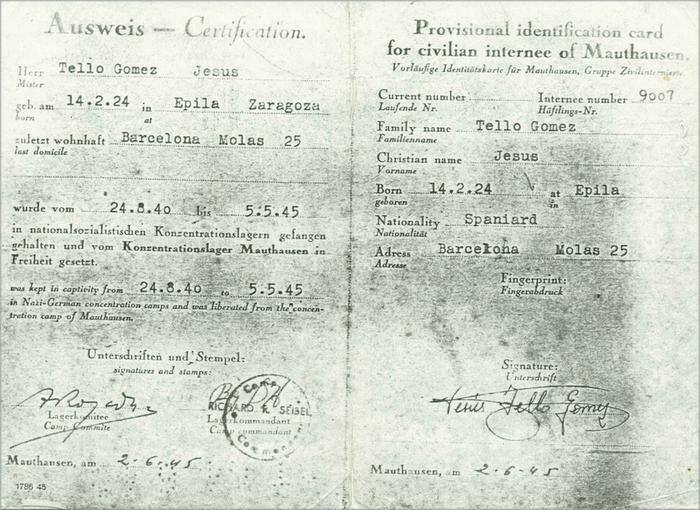 Ausweis — Certification.
Herr Tello Gomez Jesus
Mister
geb. am 14.2.24 in Epila Zaragoza
born at
zuletzt wohnhaft Barcelona Molas 25
last domicile
wurde vom 24.8.40 bis 5.5.45
in nationalsozialistischen Konzentrationslagern gefangen
gehalten und vom Konzentrationslager Mauthausen in
Freiheit gesetzt.
was kept in captivity from 24.8.40 to 5.5.45
in Nazi-German concentration camps and was liberated from the concen-
tration camp of Mauthausen.
Unterschriften und Stempel:
signatures and stamps:
RICHARD R. SEIBEL
Lagerkomitee Lagerkommandant
Camp Commite Camp commandant
Mauthausen, am 2-6-45
1786 45
Provisional identification card
for civilian internee of Mauthausen.
Vorläufige Identitätskarte für Mauthausen, Gruppe Zivilinternierte.
Current number Internee number 9007
Laufende Nr. Häftlings-Nr.
Family name Tello Gomez
Familienname
Christian name Jesus
Vorname
Born 14.2.24 at Epila
geboren in
Nationality Spaniard
Nationalität
Adress Barcelona Molas 25
Adresse
Fingerprint:
Fingerabdruck
Signature:
Unterschrift
Jesus Tello Gomez
Mauthausen, am 2-6-45